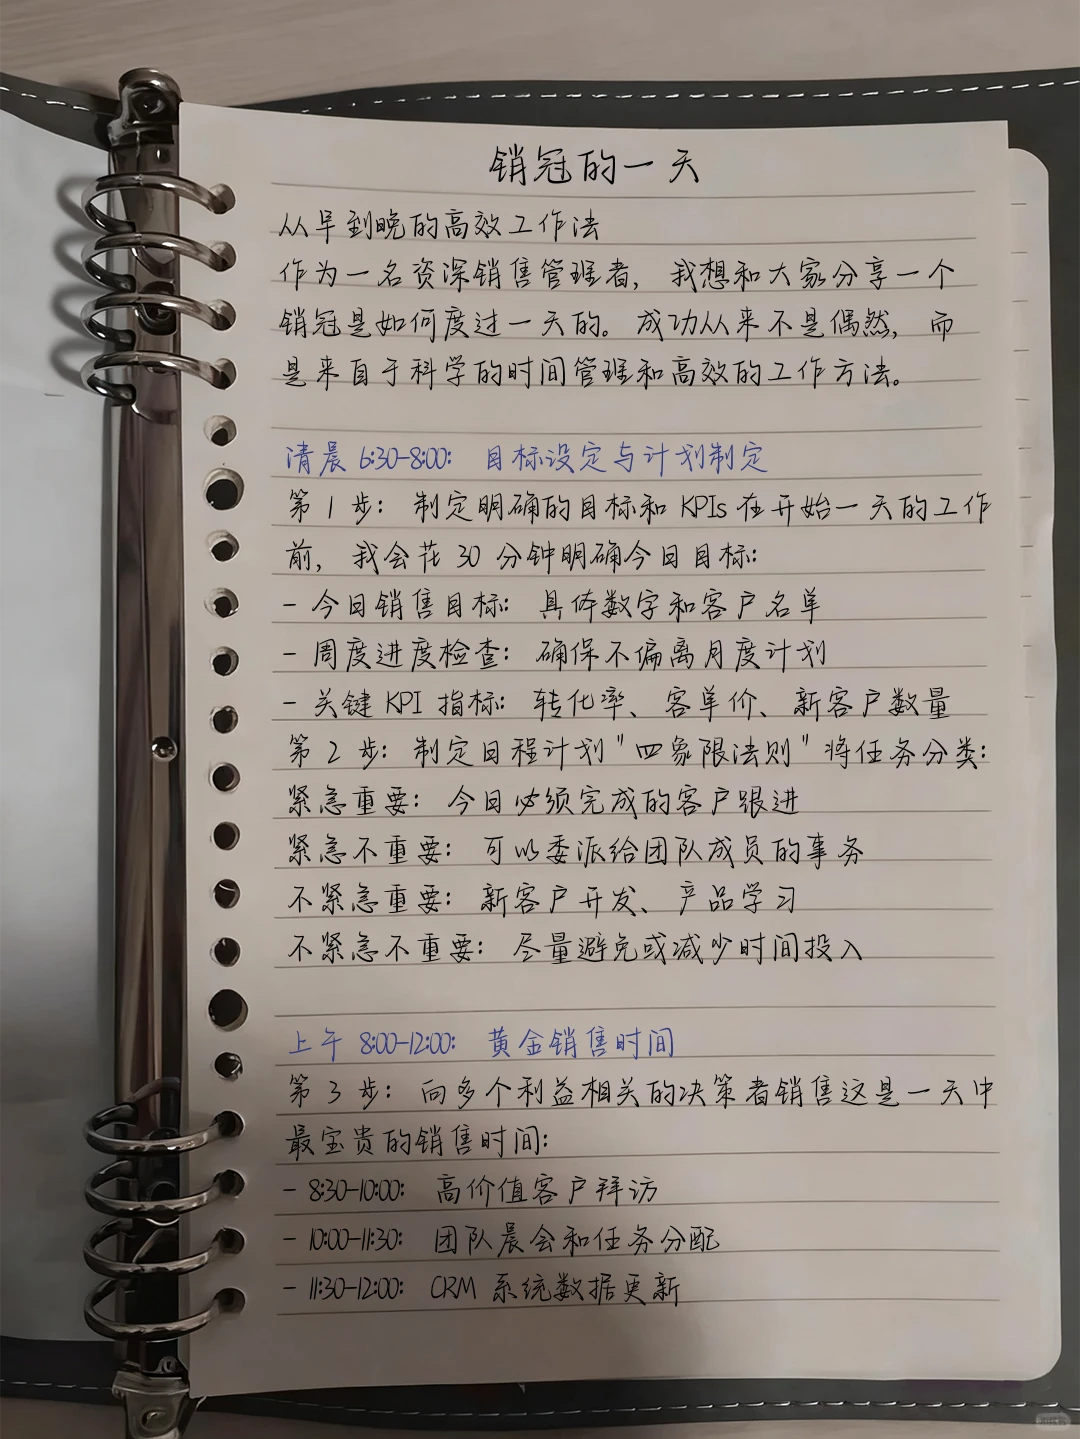 销冠的一天
从早到晚的高效工作法
作为一名资深销售管理者，我想和大家分享一个
销冠是如何度过一天的。成功从来不是偶然，而
是来自于科学的时间管理和高效的工作方法。
清晨 6:30-8:00：目标设定与计划制定
第 1 步：制定明确的目标和 KPIs 在开始一天的工作
前，我会花 30 分钟明确今日目标：
- 今日销售目标：具体数字和客户名单
- 周度进度检查：确保不偏离月度计划
- 关键 KPI 指标：转化率、客单价、新客户数量
第 2 步：制定日程计划"四象限法则"将任务分类：
紧急重要：今日必须完成的客户跟进
紧急不重要：可以委派给团队成员的事务
不紧急重要：新客户开发、产品学习
不紧急不重要：尽量避免或减少时间投入
上午 8:00-12:00：黄金销售时间
第 3 步：向多个利益相关的决策者销售这是一天中
最宝贵的销售时间：
- 8:30-10:00：高价值客户拜访
- 10:00-11:30：团队晨会和任务分配
- 11:30-12:00：CRM 系统数据更新